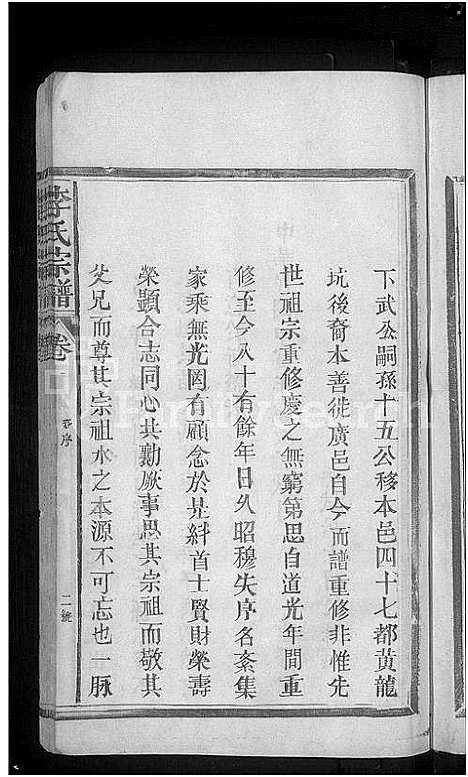 下武公嗣孫十五公移本邑四十七都黄龍
坑後裔本善徙廣邑自今而譜重修非惟先
世祖宗重修慶之無窮第思自道光年間重
修至今八十有餘年日久昭穆失序名紊集
家乘無光罔有顧念於是糾首士賢財榮壽
榮顯合志同心共勷厥事思其宗祖而敬其
父兄而尊其宗祖水之本源不可忘也一脉
李氏宗譜
卷
序
二號